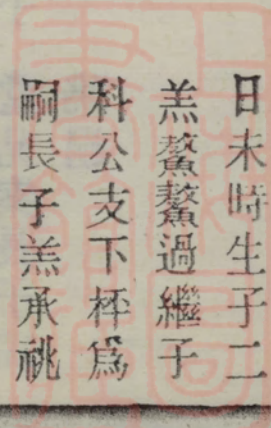 日未時生子二
羔鰲鰲過繼子
科公支下秤爲
嗣長子羔承祧